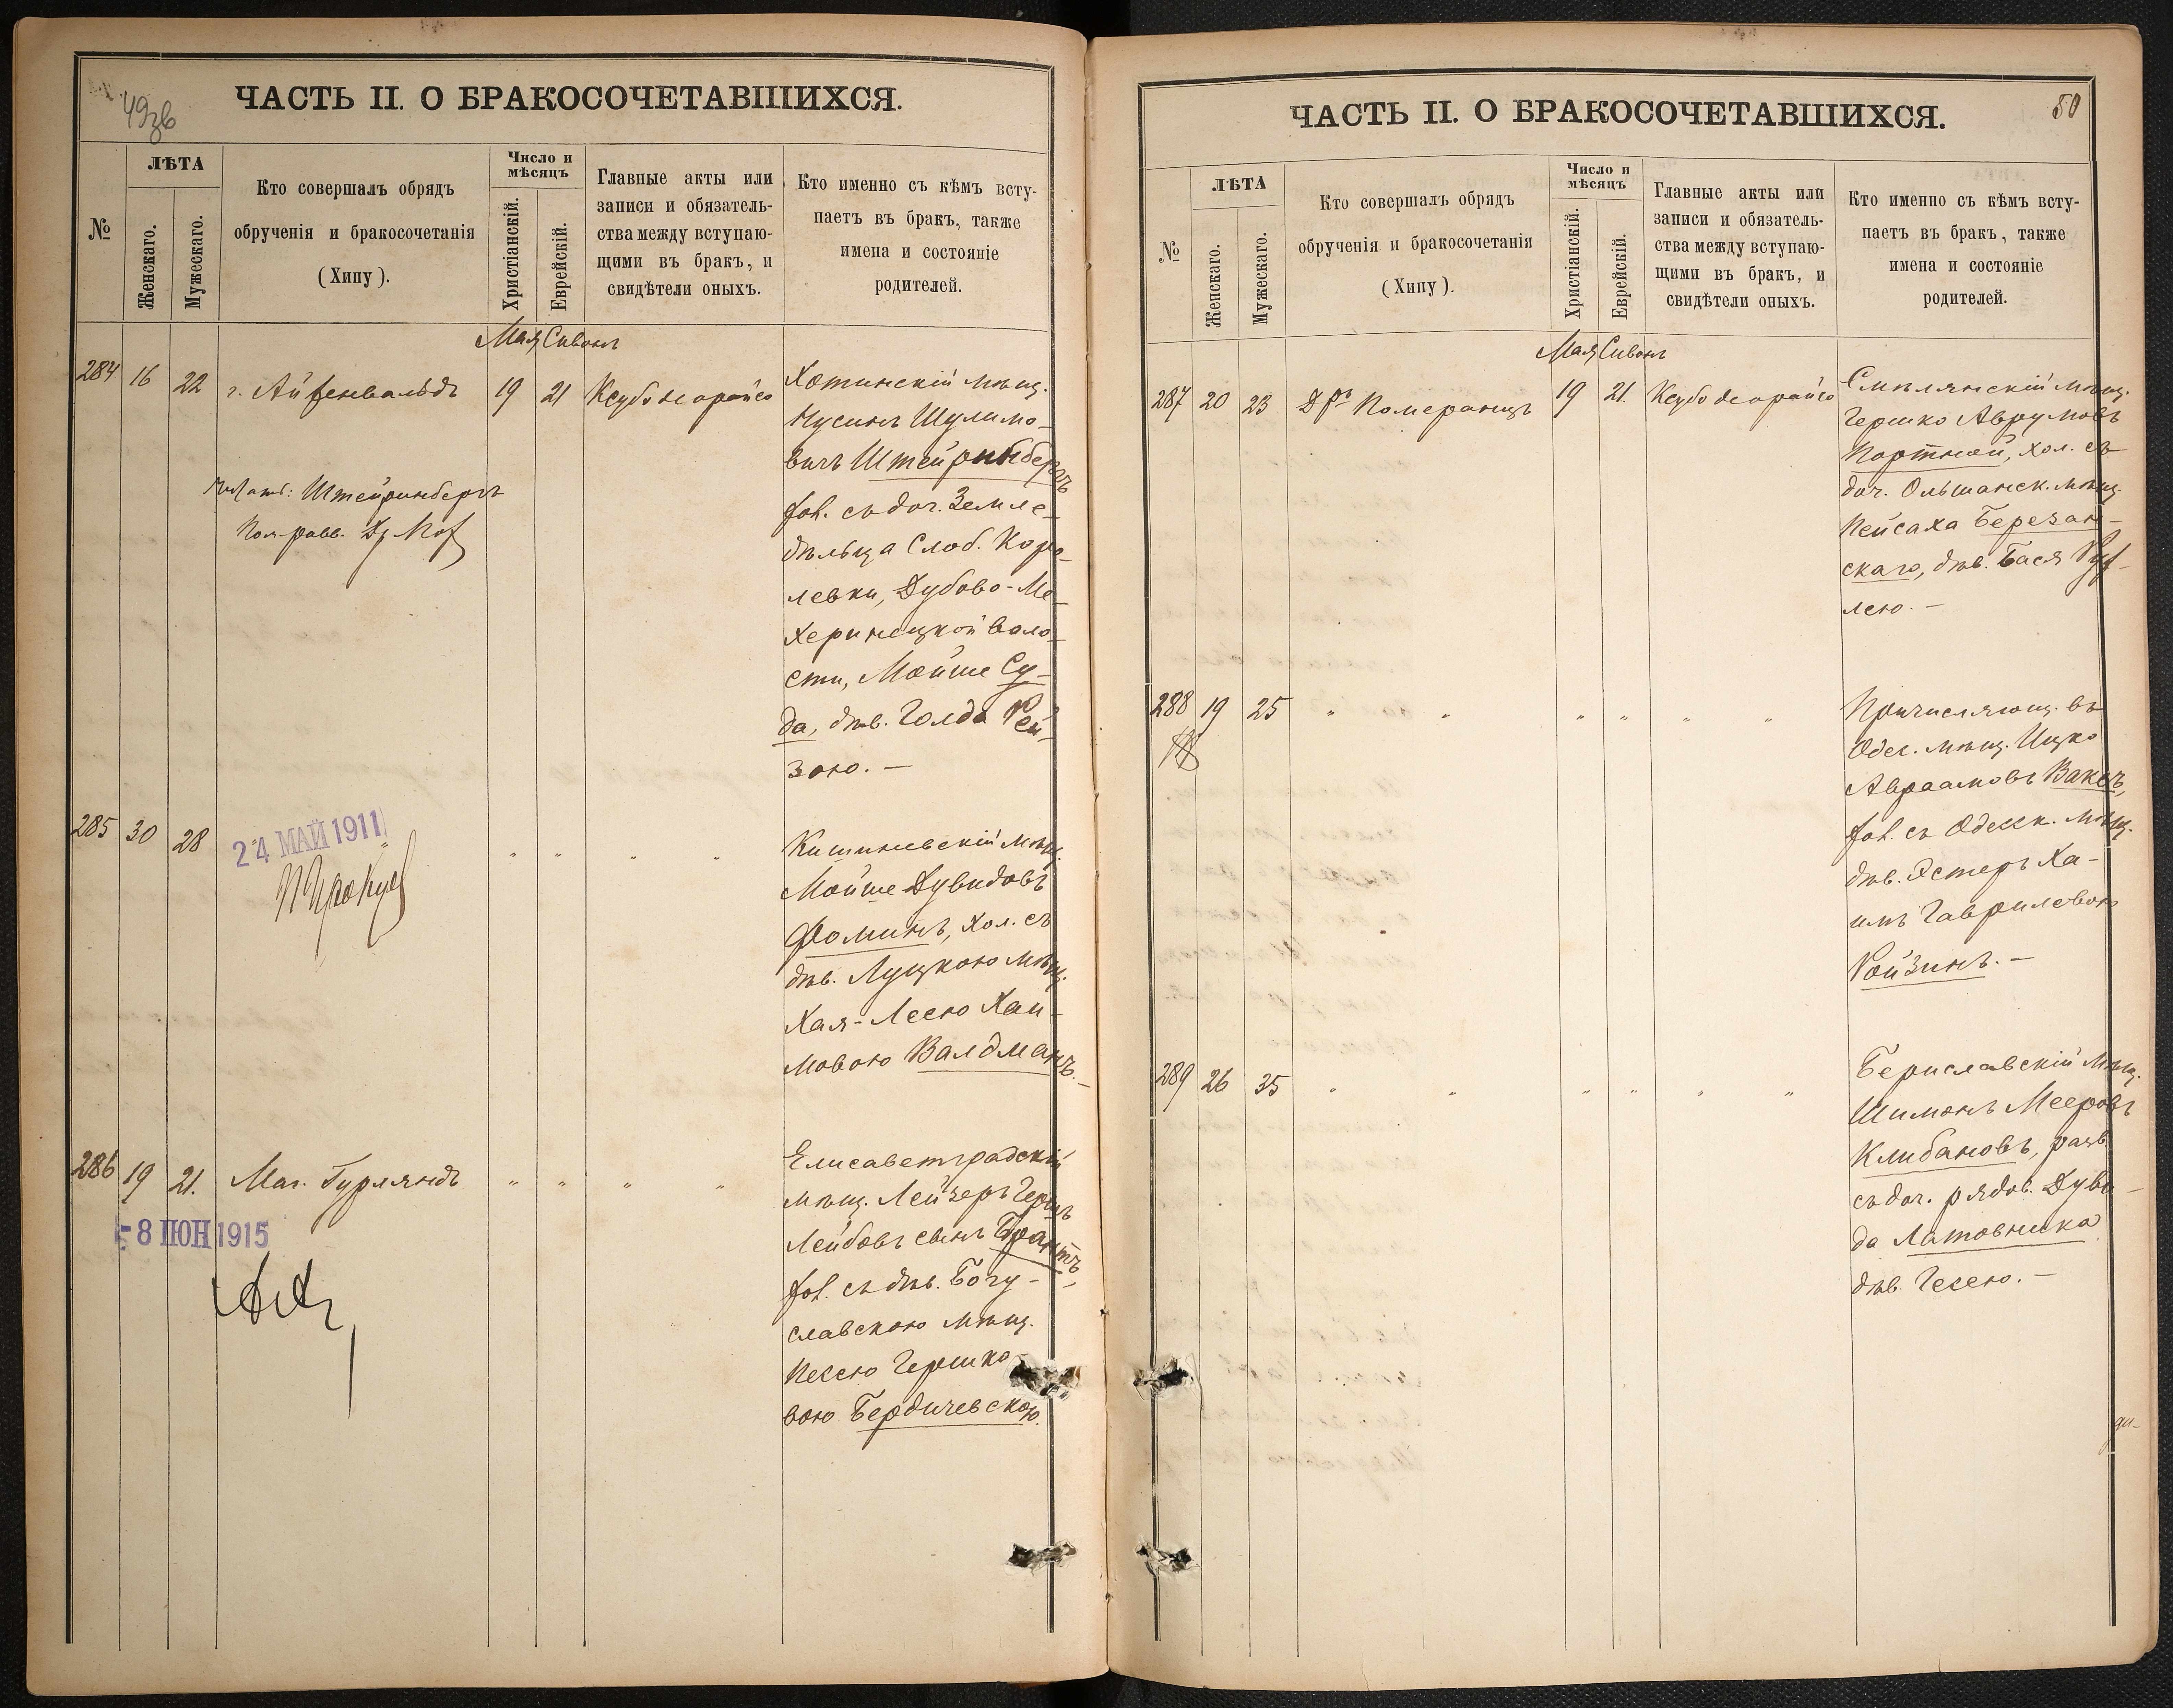 ЧАСТЬ II. О БРАКОСОЧЕТАВШИХСЯ.
№
ЛѢТА
Женскаго.
Мужескаго.
Кто совершалъ обрядъ
обрученія и бракосочетанія
(Хипу).
Число и
мѣсяцъ
Христіанскій.
Еврейскій.
Главные акты или
записи и обязатель-
ства между вступаю-
щими въ бракъ, и
свидѣтели оныхъ.
Кто именно съ кѣмъ всту-
паетъ въ бракъ, также
имена и состояніе
родителей.
Мая Сивонъ
284 16 22 г. Айзенвальдъ 19 21
Хотинскій мѣщ.
Нусинъ Шулимо-
вичъ Штейринбергъ
хол. съ доч. Земле-
дѣльца Слоб. Коро-
левки, Дубово-Ме-
херинецкой воло-
сти, Мойше Су-
да, дѣв. Голда Рей-
зою. —
Штейринбергъ
285 30 28 " " " " "
24 МАЙ 1911
Кишиневскій мѣщ.
Мойше Дувидовъ
Фоминъ, хол. съ
дѣв. Луцкою мѣщ.
Хая-Леею Хаи-
мовою Валдманъ. —
286 19 21. Маг. Гурляндъ " " " "
-8 ІЮН 1915
Елисаветградскій
мѣщ. Лейзеръ Гершъ
Лейбовъ сынъ Брантъ,
хол. съ дѣв. Богу-
славскою мѣщ.
Песею Гершко-
вою Бердичевскою.
ЧАСТЬ II. О БРАКОСОЧЕТАВШИХСЯ.
50
№
ЛѢТА
Женскаго.
Мужескаго.
Кто совершалъ обрядъ
обрученія и бракосочетанія
(Хипу).
Число и
мѣсяцъ
Христіанскій.
Еврейскій.
Главные акты или
записи и обязатель-
ства между вступаю-
щими въ бракъ, и
свидѣтели оныхъ.
Кто именно съ кѣмъ всту-
паетъ въ бракъ, также
имена и состояніе
родителей.
Мая Сивонъ
287 20 23 Дръ Померанцъ 19 21.
Смѣлянскій мѣщ.
Гершко Аврумовъ
Портной, хол. съ
доч. Ольшанск. мѣщ.
Пейсаха Березан-
скаго, дѣв. Бася Рух-
лею. —
288 19 25 " " " " " "
Причисляющ. въ
Одес. мѣщ. Ицко
Авраамовъ Ваксъ,
хол. съ Одесск. мѣщ.
дѣв. Эстеръ Ха-
имъ Гавриловою
Ройзинъ. —
289 26 35 " " " " " "
Бериславскій мѣщ.
Шимонъ Мееровъ
Клибановъ, разв.
съ доч. рядов. Дуви-
да Латовника
дѣв. Гесею. —